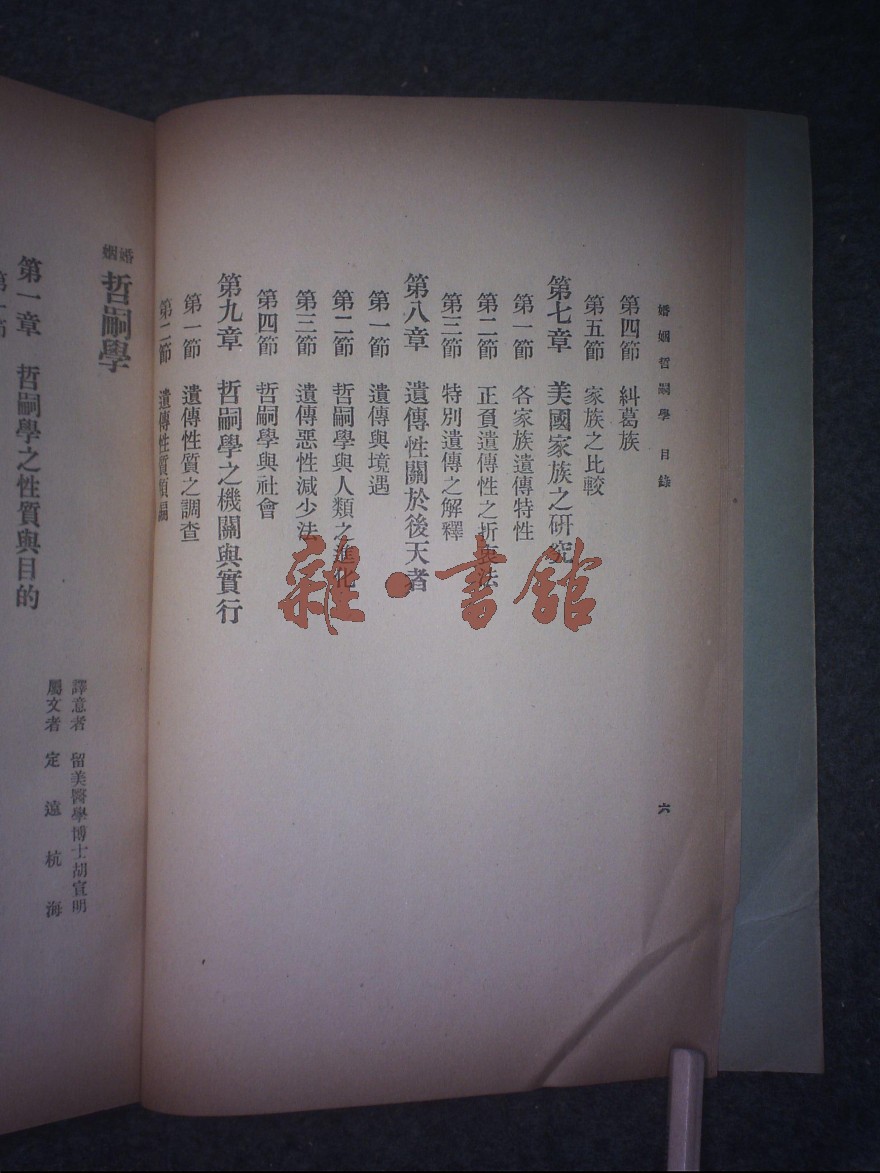 婚姻哲嗣學 目錄
六
第四節 糾葛族
第五節 家族之比較
第七章 美國家族之研究
第一節 各家族遺傳特性
第二節 正負遺傳性之折衷法
第三節 特別遺傳之解釋
第八章 遺傳性關於後天者
第一節 遺傳與境遇
第二節 哲嗣學與人類之進化
第三節 遺傳惡性減少法
第四節 哲嗣學與社會
第九章 哲嗣學之機關與實行
第一節 遺傳性質之調查
第二節 遺傳性質類編
婚姻
哲嗣學
譯意者 留美醫學博士胡宣明
屬文者 定遠杭海
第一章 哲嗣學之性質與目的
第一節
雜·書館